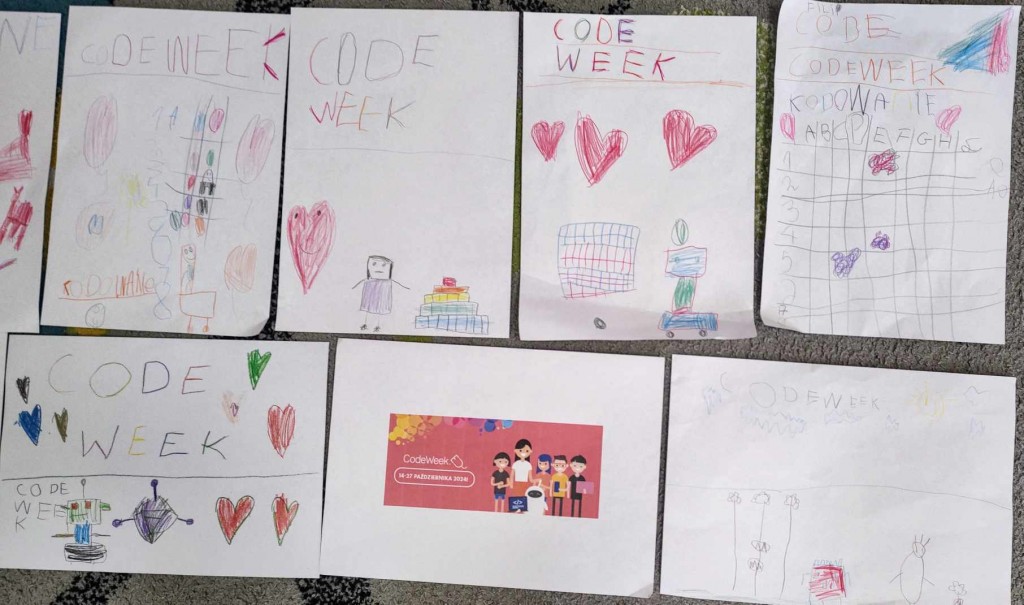 CODEWEEK
KODOWANIE
CODE
WEEK
CODE
WEEK
FILIP
CODE
CODEWEEK
KODOWANIE
A B C D E F G H I
1
2
3
4
5
CODE
WEEK
CODE
WEE
K
CodeWeek
14-27 PAŹDZIERNIKA 2024!
CODEWEEK